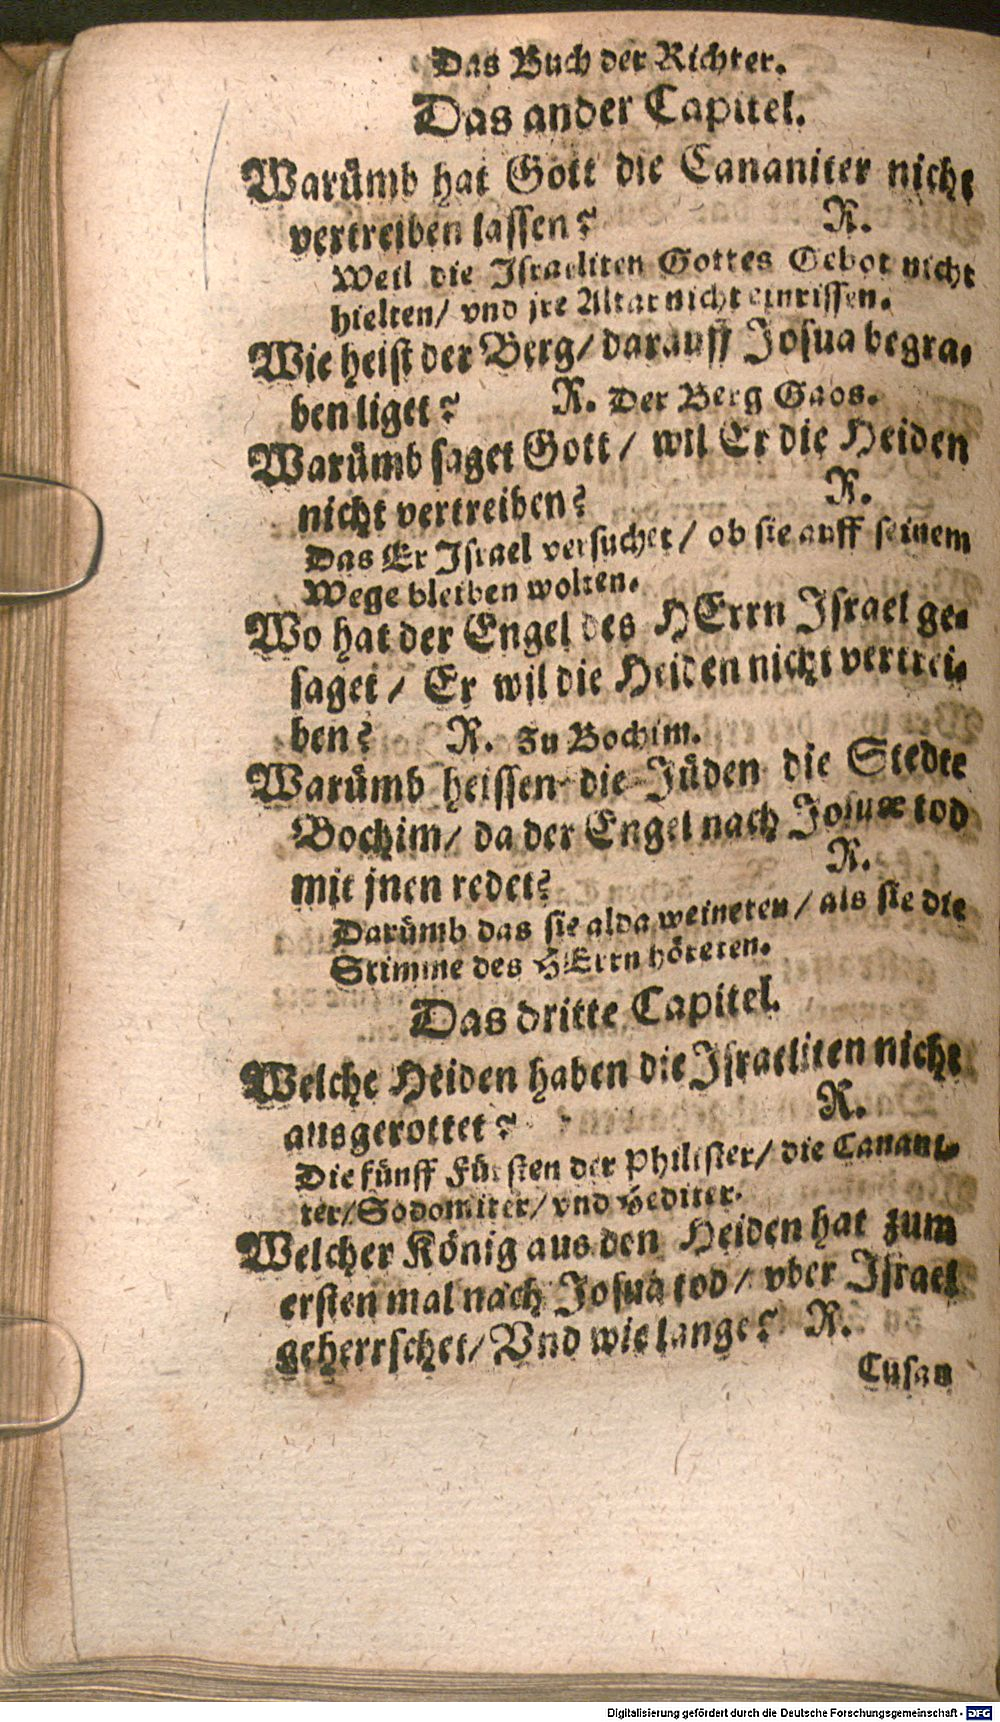 Das Buch der Richter.
Das ander Capitel.
Warümb hat Gott die Cananiter nicht
vertreiben lassen? R.
Weil die Israeliten Gottes Gebot nicht
hielten/ vnd jre Altar nicht einrissen.
Wie heist der Berg/ darauff Josua begra-
ben liget? R. Der Berg Gaos.
Warümb saget Gott/ wil Er die Heiden
nicht vertreiben? R.
Das Er Israel versuchet/ ob sie auff seinem
Wege bleiben wolten.
Wo hat der Engel des HErrn Israel ge-
saget/ Er wil die Heiden nicht vertrei-
ben? R. Zu Bochim.
Warümb heissen die Jüden die Stedte
Bochim/ da der Engel nach Josuæ tod
mit jnen redet? R.
Darümb das sie alda weineten/ als sie die
Stimme des HErrn höreten.
Das dritte Capitel.
Welche Heiden haben die Israeliten nicht
ausgerottet? R.
Die fünff Fürsten der Philister/ die Canani-
ter/ Sodomiter/ vnd Hediter.
Welcher König aus den Heiden hat zum
ersten mal nach Josua tod/ vber Israel
geherrschet/ Vnd wie lange? R.
Cusan
Digitalisierung gefördert durch die Deutsche Forschungsgemeinschaft - DFG